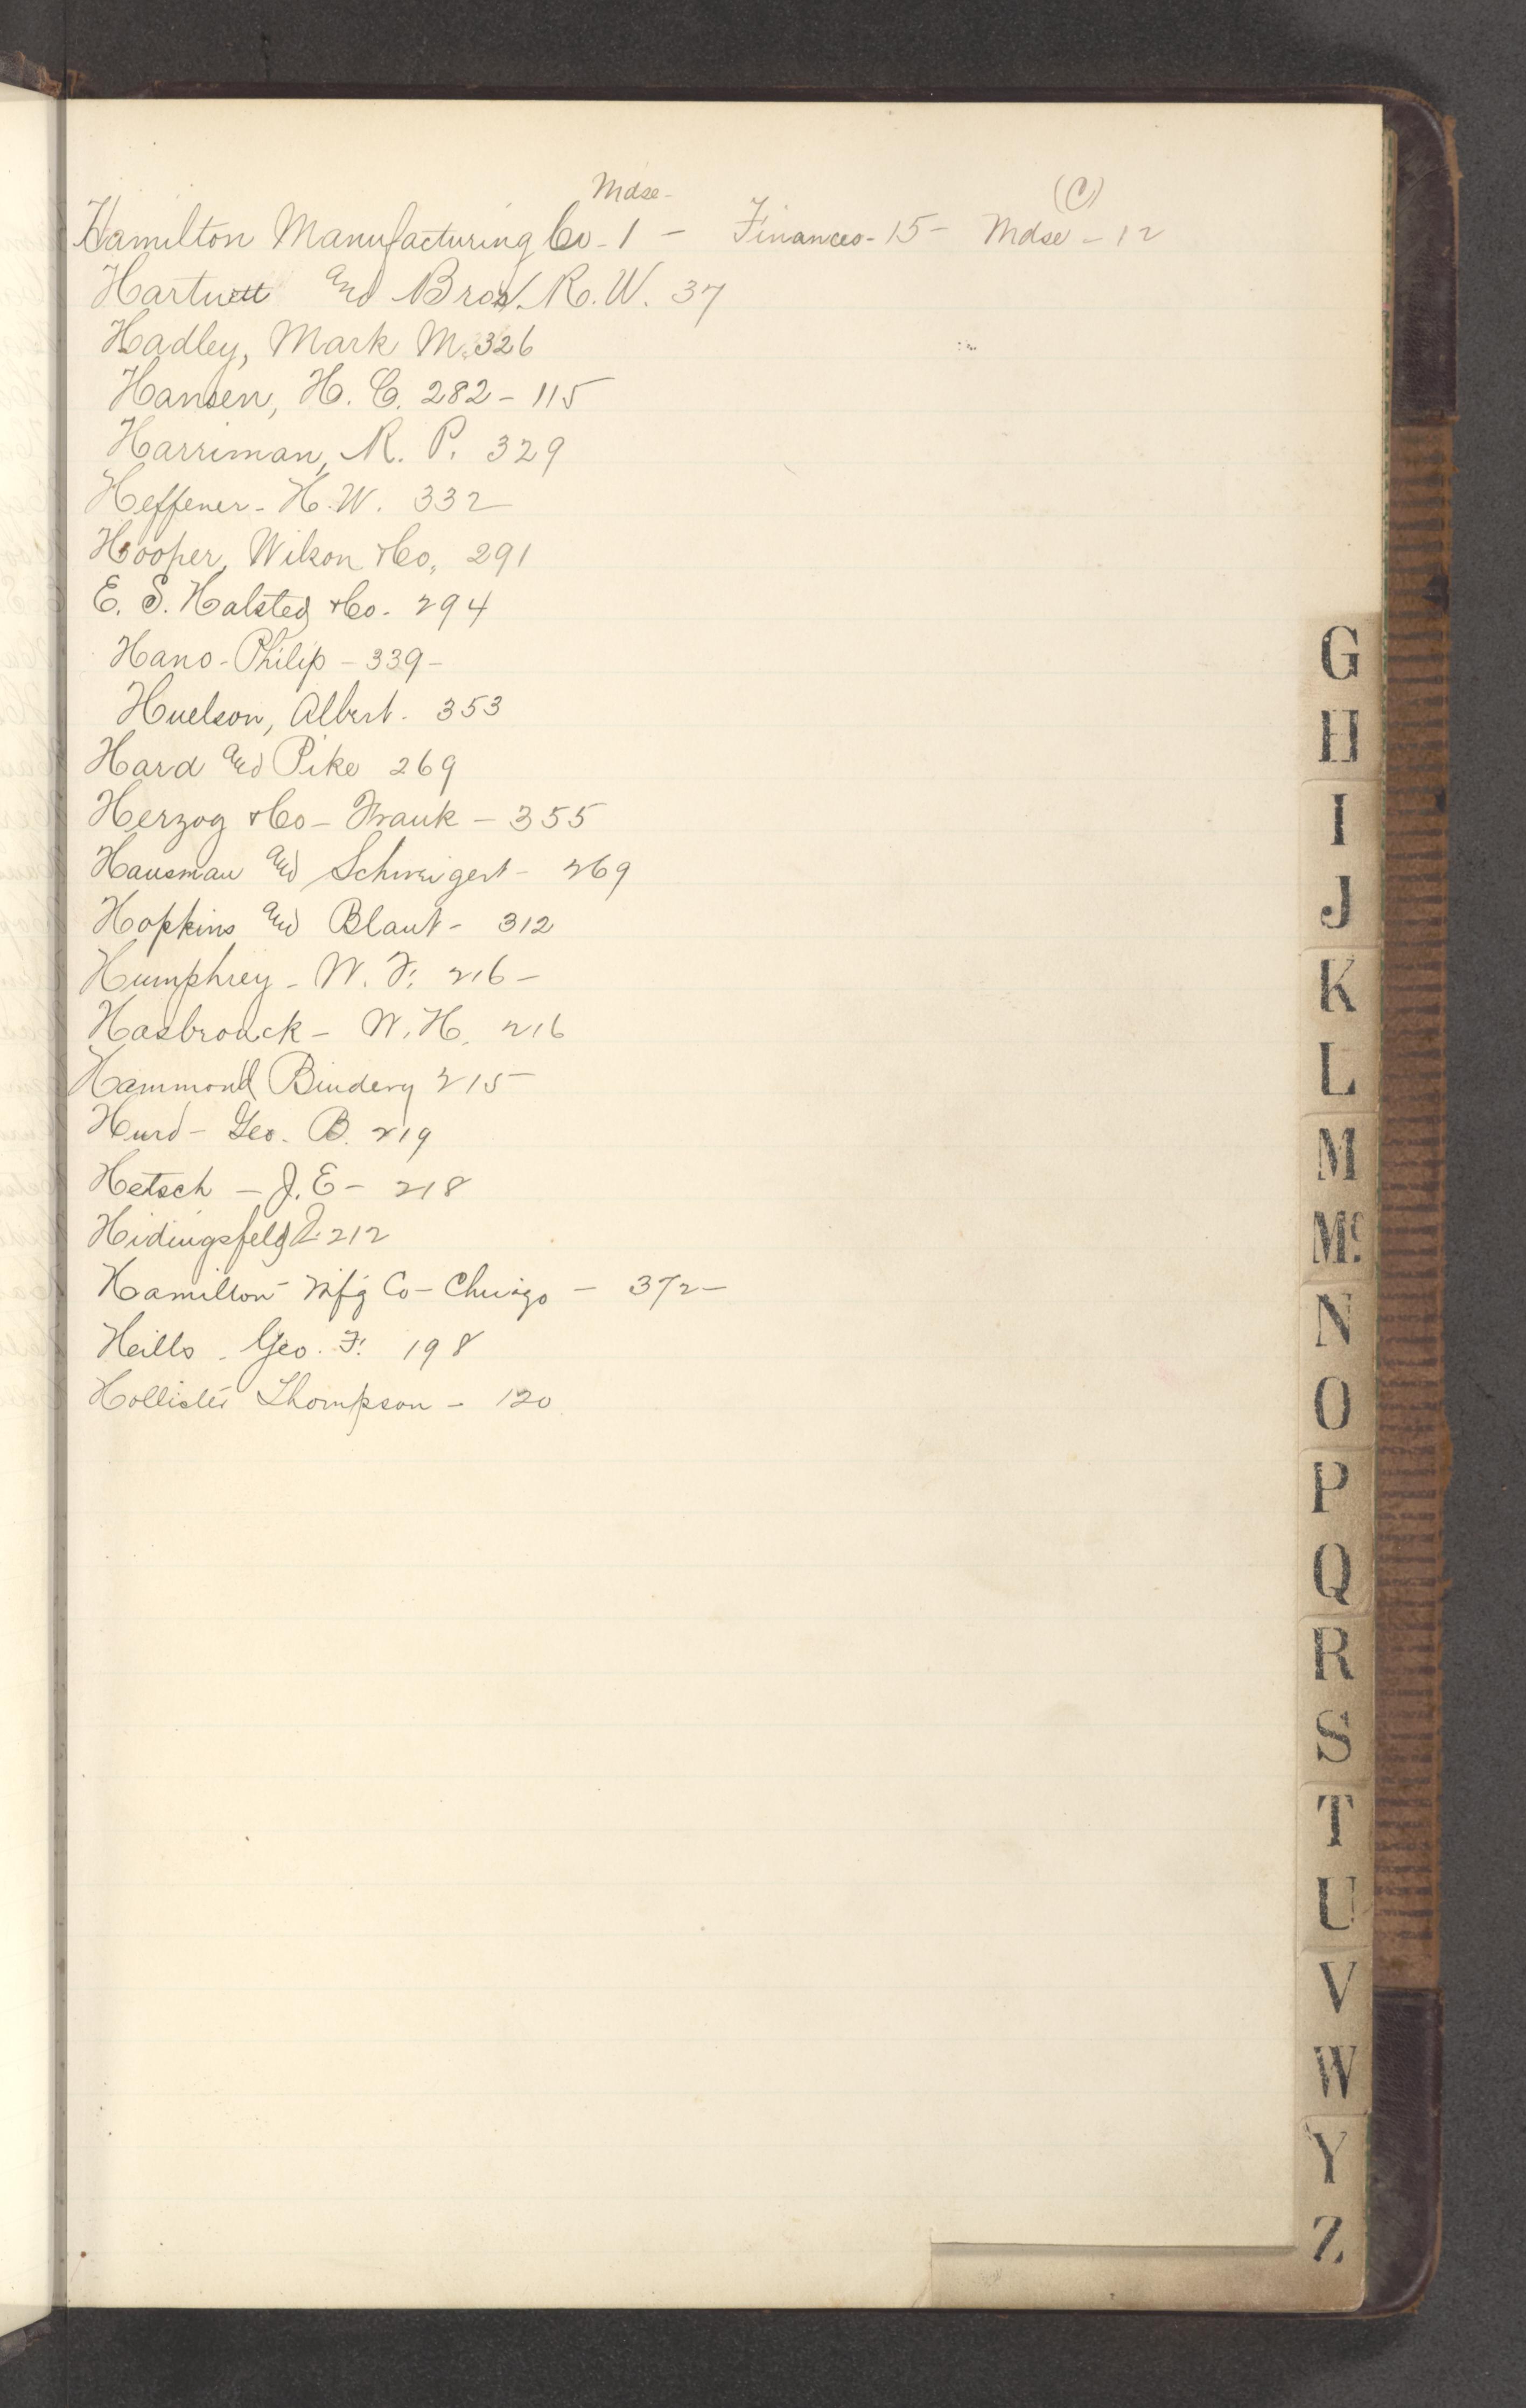 Mdse - (C)
Hamilton Manufacturing Co - 1 - Finances - 15 - Mdse - 12
Hartnett and Bros. R. W. 37
Hadley, Mark M. 326
Hansen, H. C. 282 - 115
Harriman, R. P. 329
Heffener - H. W. 332
Hooper, Wilson & Co, 291
E. S. Halsted & Co. 294
Hano - Philip - 339 -
Huelson, Albert - 353
Hard and Pike 269
Herzog & Co - Frank - 355
Hausman and Schweigert - 269
Hopkins and Blaut - 312
Humphrey - W. F. 216 -
Hasbrouck - W. H. 216
Hammond Bindery 215
Hurd - Geo. B. 219
Hetsch - J. E - 218
Hidingsfeld 212
Hamilton Mfg Co - Chicago - 372 -
Heills - Geo. F. 198
Hollister Thompson - 120
G
H
I
J
K
L
M
Mc
N
O
P
Q
R
S
T
U
V
W
Y
Z